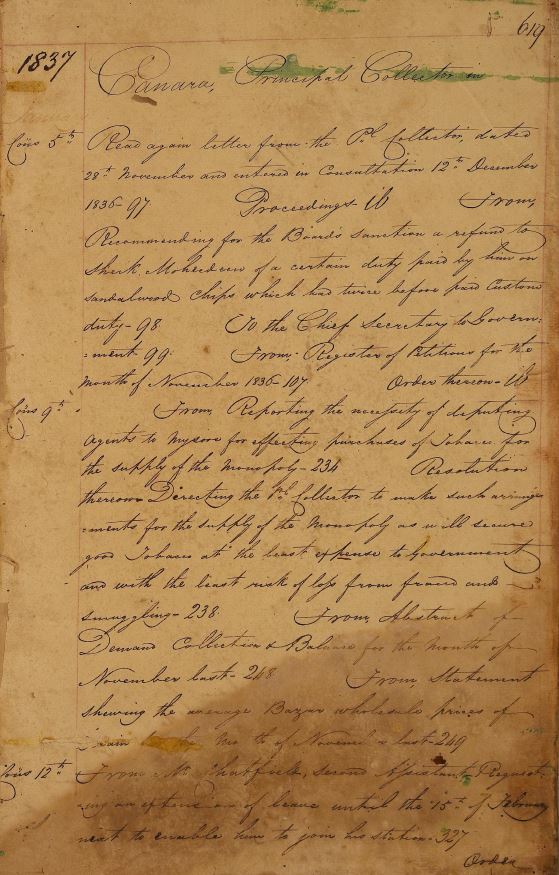 619
1837
Canara, Principal Collector in
Cons 5th Read again letter from the Pl. Collector, dated
28th November and entered in Consultation 12th December
1836-97 Proceedings- ib From,
Recommending for the Board's sanction a refund to
Sheik Moheedeen of a certain duty paid by him on
Sandalwood Chips which had twice before paid Custom
duty-98 To the Chief Secretary to Govern:
:ment-99. From,- Register of Petitions for the
month of November 1836-107 Order thereon- ib
Cons 9th From, Reporting the necessity of deputing
Agents to Mysore for effecting purchases of Tobacco for
the supply of the Monopoly-234 Resolution
thereon- Directing the Pl. Collector to make such arrange
:ments for the supply of the Monopoly as will secure
good Tobacco at the least expense to Government
and with the least risk of loss from fraud and
smuggling-238. From, Abstract of
Demand Collection & Balance for the month of
November last-248 From, Statement
shewing the average Bazar wholesale prices of
Grain for the Month of November last-249
Cons 12th From Mr Chatfield, second Assistant, Request:
:ing an extension of leave until the 15th of February
next to enable him to join his station-327
Order